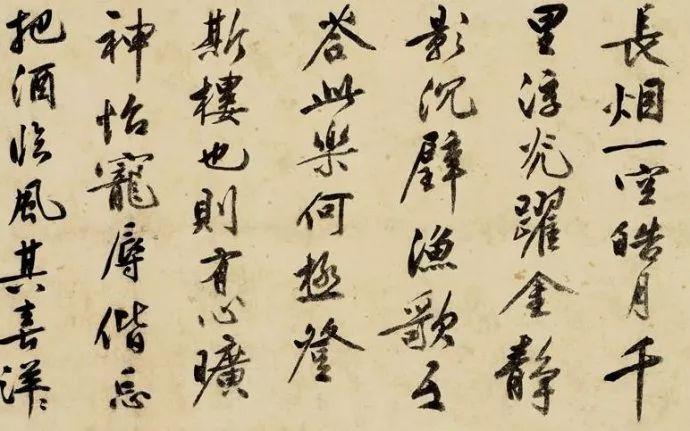 長烟一空皓月千
里浮光躍金静
影沉璧漁歌互
答此樂何極登
斯樓也則有心曠
神怡寵辱偕忘
把酒临風其喜洋〻